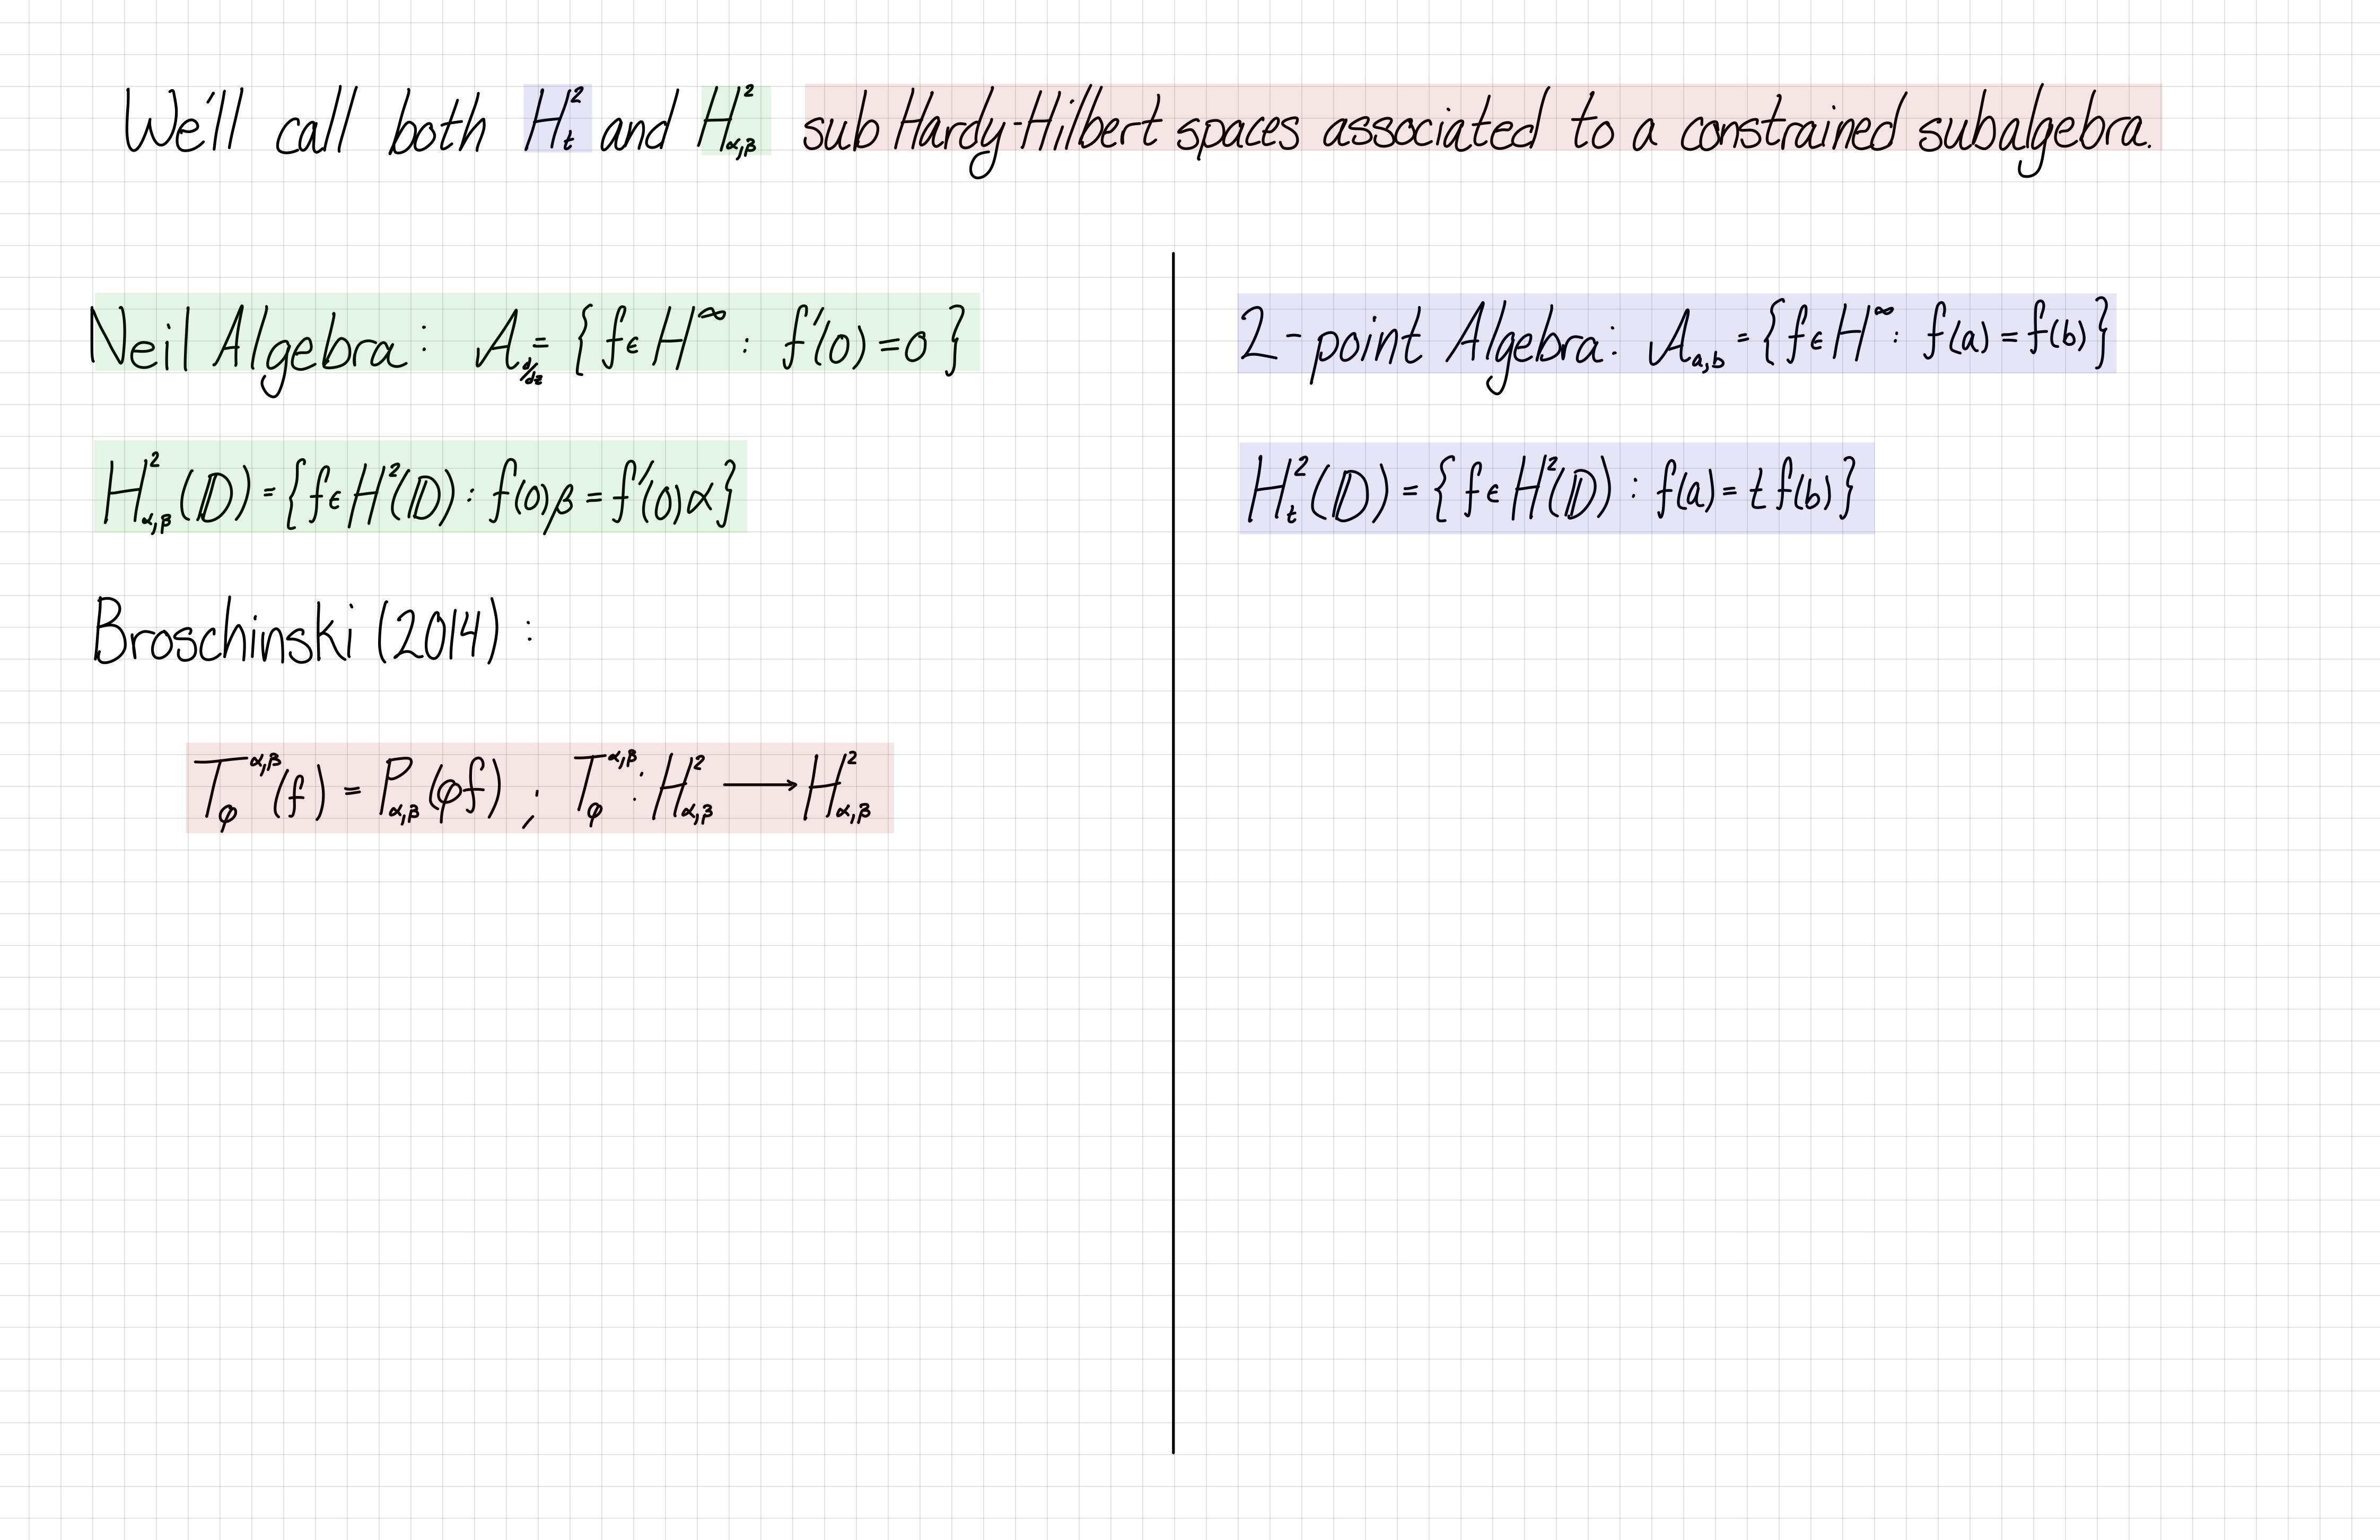 We'll call both H²ₜ and H²_{α,β} sub Hardy-Hilbert spaces associated to a constrained subalgebra.
Neil Algebra: 𝒜_{d/dz} = {f ∈ H^∞ : f'(0) = 0}
H²_{α,β}(𝔻) = {f ∈ H²(𝔻) : f(0)β = f'(0)α}
Broschinski (2014) :
T_φ^{α,β}(f) = P_{α,β}(φf) ; T_φ^{α,β} : H²_{α,β} ⟶ H²_{α,β}
2-point Algebra: 𝒜_{a,b} = {f ∈ H^∞ : f(a) = f(b)}
H²ₜ(𝔻) = {f ∈ H²(𝔻) : f(a) = t f(b)}